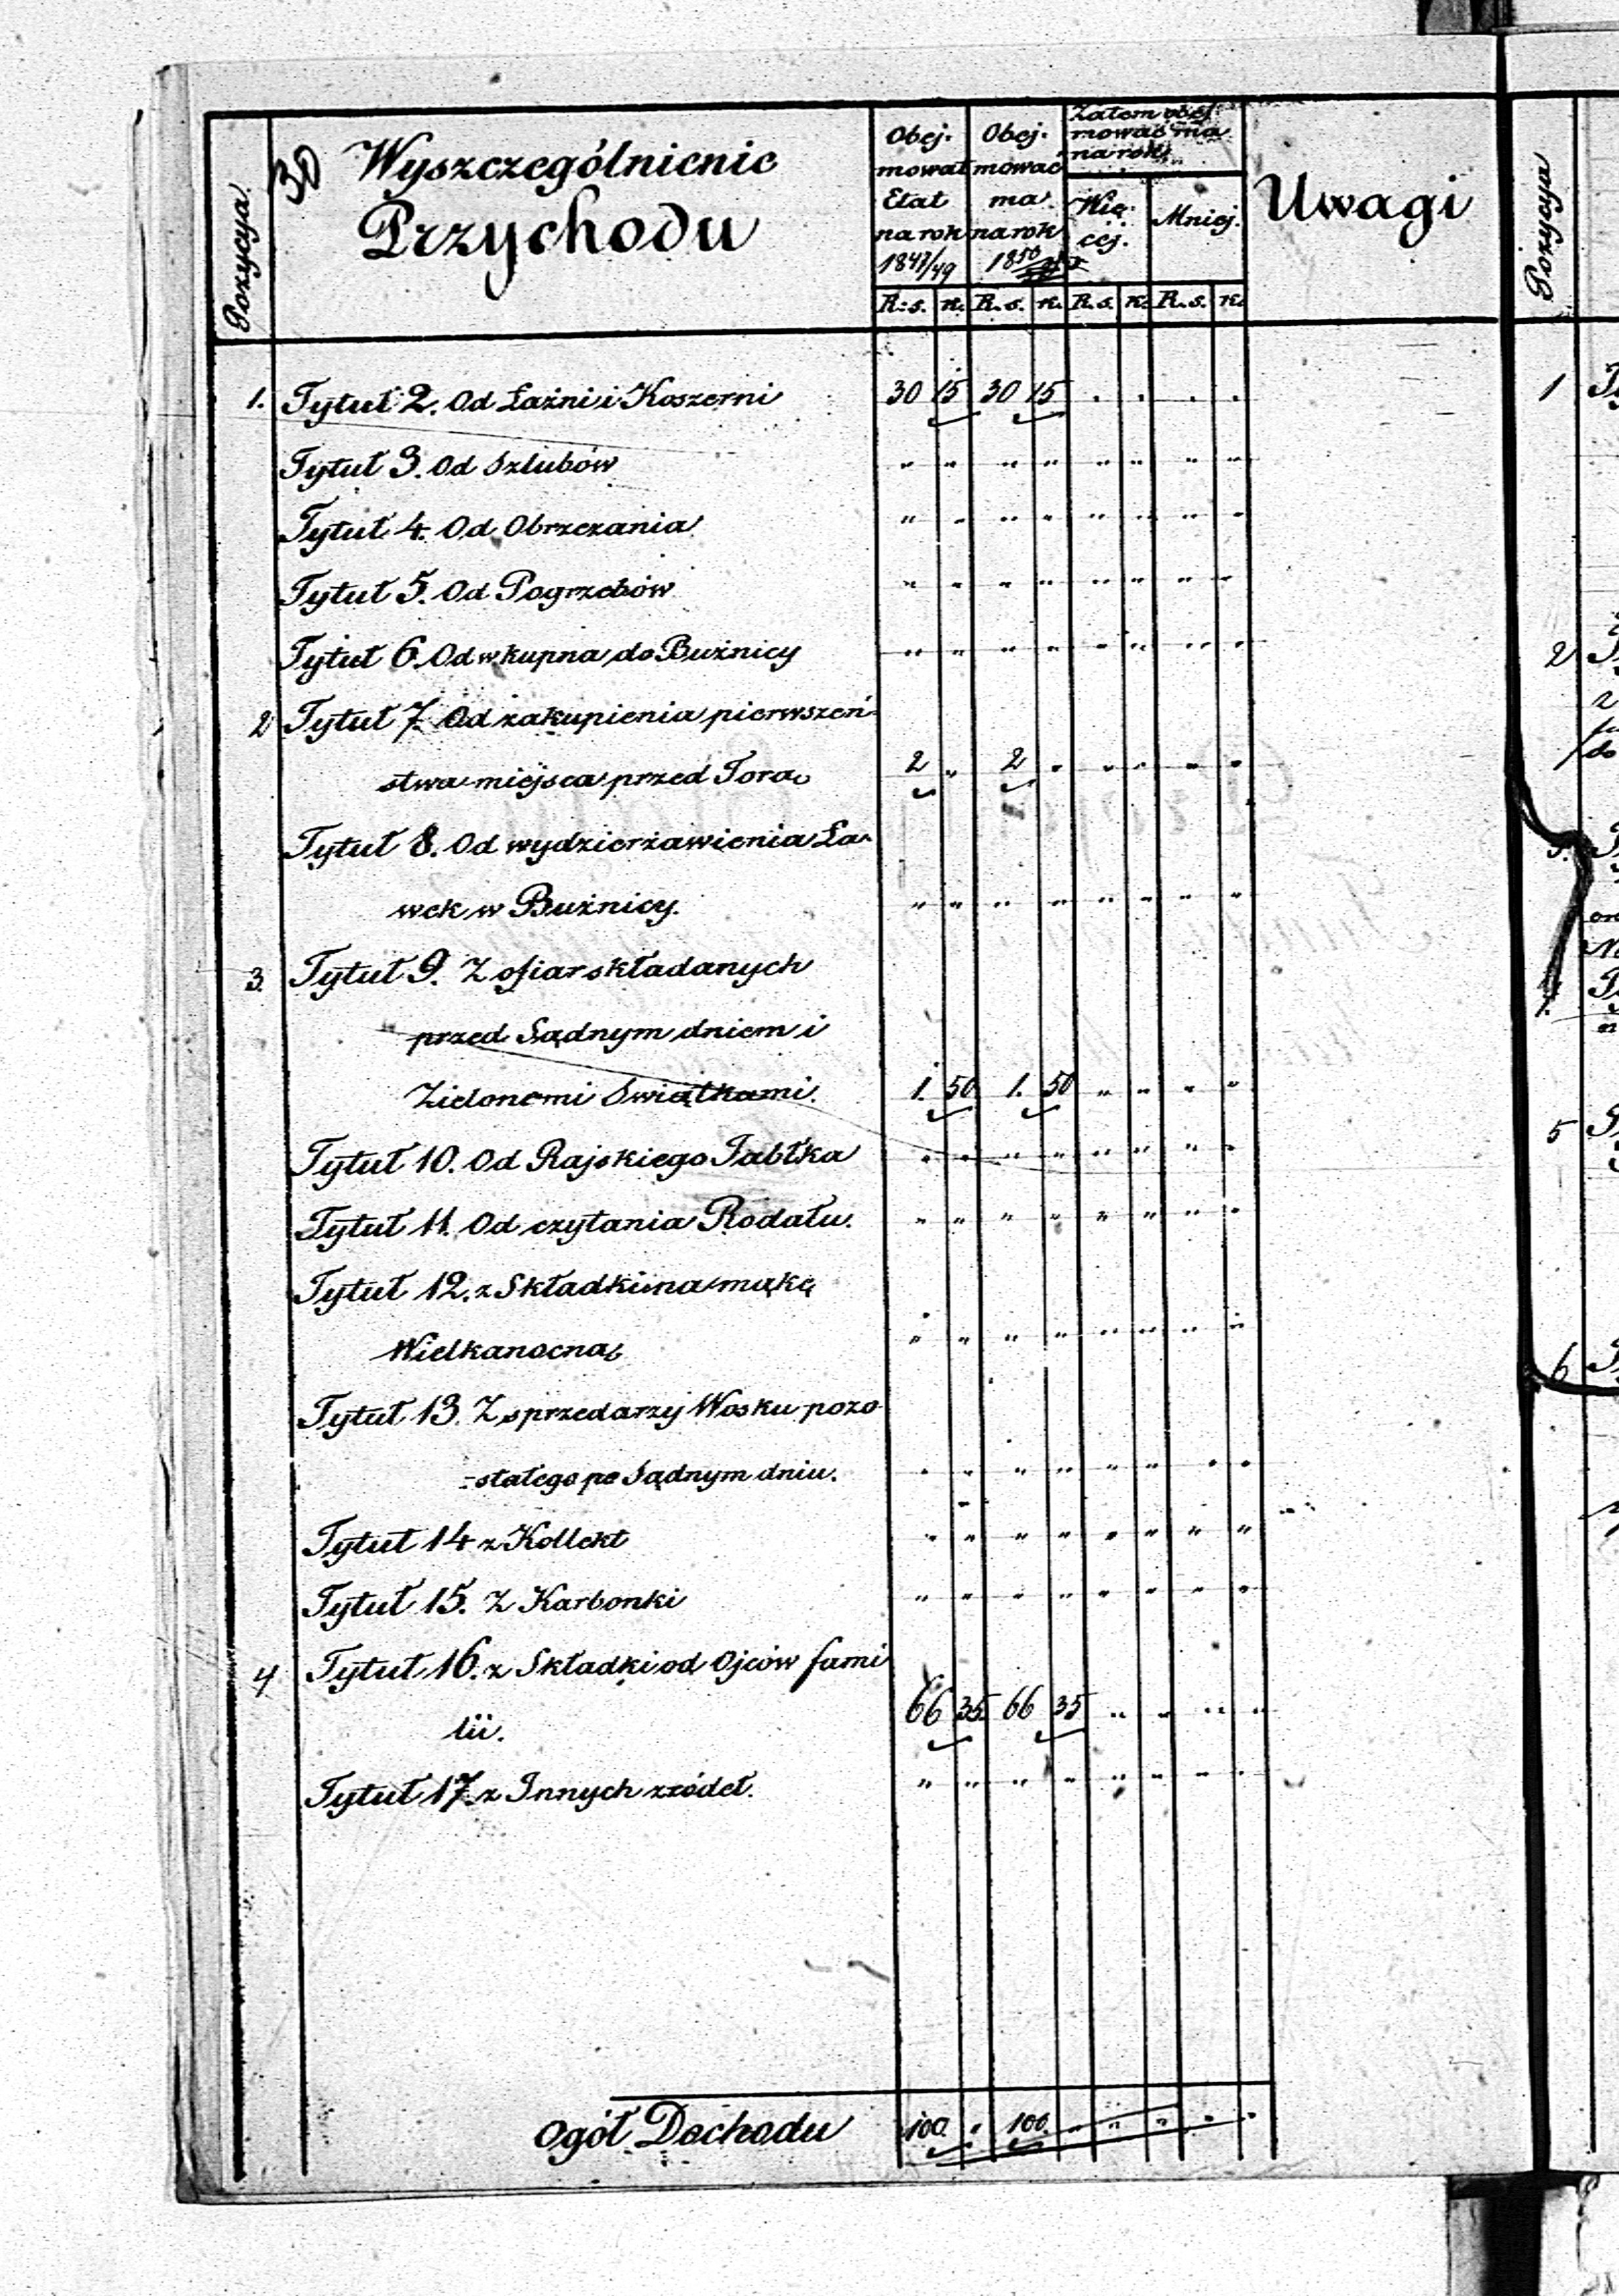 30
Pozycya
Wyszczególnienie
Przychodu
Obej-
mował
Etat
na rok
1847/49
Obej-
mować
ma
na rok
1850
Zatem obej
mować ma
na rok
Wię-
cej.
Mniej.
Uwagi
R.s. k. R.s. k. R.s. k. R.s. k.
1. Tytuł 2. Od Łaźni i Koszerni 30 15 30 15 . . . .
Tytuł 3. Od Szlubów " " " " " " " "
Tytuł 4. Od Obrzezania " " " " " " " "
Tytuł 5. Od Pogrzebów " " " " " " " "
Tytuł 6. Od wkupna do Bużnicy " " " " " " " "
2 Tytuł 7. Od zakupienia pierwszeń-
stwa miejsca przed Torą 2 " 2 " " " " "
Tytuł 8. Od wydzierżawienia Ła-
wek w Bużnicy. " " " " " " " "
3. Tytuł 9. Z ofiar składanych
przed Sądnym dniem i
Zielonemi Swiątkami. 1. 50 1. 50 " " " "
Tytuł 10. Od Rajskiego Jabłka " " " " " " " "
Tytuł 11. Od czytania Rodału. " " " " " " " "
Tytuł 12. z Składki na mąkę
Wielkanocną " " " " " " " "
Tytuł 13. Z sprzedarzy Wosku pozo
-stałego po Sądnym dniu. " " " " " " " "
Tytuł 14 z Kollekt " " " " " " " "
Tytuł 15. Z Karbonki " " " " " " " "
4 Tytuł 16. z Składki od Ojców fami
lii. 66 35 66 35 " " " "
Tytuł 17. z Innych zródeł. " " " " " " " "
Ogół Dochodu 100. " 100. " " " " "
Pozycya
1
2
5
6